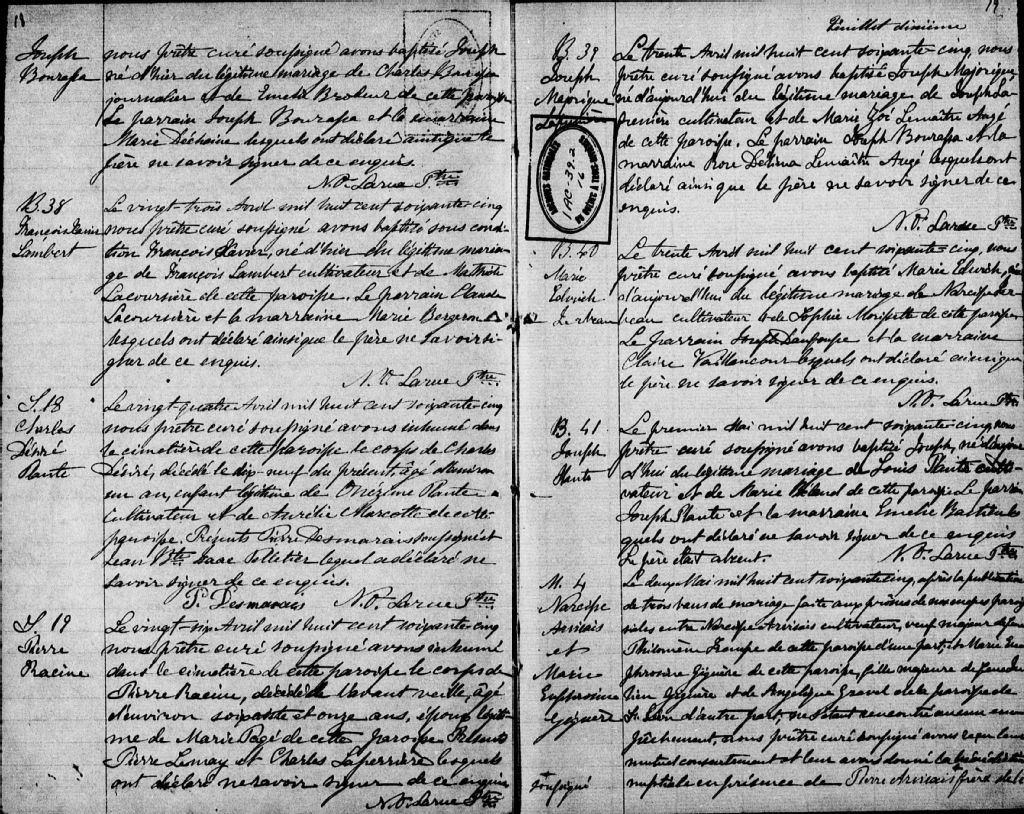 18
Joseph
Bourassa
nous prêtre curé soussigné avons baptisé Joseph
né d'hier du légitime mariage de Charles Bourassa
journalier et de Emelie Brodeur de cette paroisse
Le parrain Joseph Bourassa et la marraine
Marie Déchaine lesquels ont déclaré ainsi que le
père ne savoir signer de ce enquis.
N.O. Larue Ptre
B. 38
François Xavier
Lambert
Le vingt trois Avril mil huit cent soixante-cinq
nous prêtre curé soussigné avons baptisé sous condi-
tion François Xavier, né d'hier du légitime maria-
ge de François Lambert cultivateur et de Mathilde
Lacoursière de cette paroisse. Le parrain Claude
Lacoursière et la marraine Marie Bergeron
lesquels ont déclaré ainsi que le père ne savoir si-
gner de ce enquis.
N.O. Larue Ptre
S. 18
Charles
Désiré
Plante
Le vingt-quatre Avril mil huit cent soixante cinq
nous prêtre curé soussigné avons inhumé dans
le cimetière de cette paroisse le corps de Charles
Désiré, décédé le dix-neuf du présent, âgé d'environ
un an, enfant légitime de Onézime Plante
cultivateur et de Aurélie Marcotte de cette
paroisse. Présents Pierre Desmarais soussigné et
Jean Bte Isaac Pelletier lequel a déclaré ne
savoir signer de ce enquis.
P. Desmarais N.O. Larue Ptre
S. 19
Pierre
Racine
Le vingt-six Avril mil huit cent soixante cinq
nous prêtre curé soussigné avons inhumé
dans le cimetière de cette paroisse le corps de
Pierre Racine, décédé l'avant veille, âgé
d'environ soixante et onze ans, époux légiti-
me de Marie Pagé de cette paroisse Présents
Pierre Lemay et Charles Laperrière lesquels
ont déclaré ne savoir signer de ce enquis
N.O. Larue Ptre
19
Feuillet dixième
B. 39
Joseph
Majorique
Le trente Avril mil huit cent soixante-cinq, nous
prêtre curé soussigné avons baptisé Joseph Majorique
né d'aujourd'hui du légitime mariage de Joseph La-
cultivateur et de Marie Zoé Lemaître Augé
de cette paroisse. Le parrain Joseph Bourassa et la
marraine Rose Délima Lemaître Augé lesquels ont
déclaré ainsi que le père ne savoir signer de ce
enquis.
N.O. Larue Ptre
1 AC 39-2
16
B. 40
Marie
Edwich
Le trente Avril mil huit cent soixante-cinq, nous
prêtre curé soussigné avons baptisé Marie Edwich, née
d'aujourd'hui du légitime mariage de Narcisse
cultivateur et de Sophie Morissette de cette paroisse
Le parrain Joseph et la marraine
Claire Vaillancour lesquels ont déclaré ainsi que
le père ne savoir signer de ce enquis.
N.O. Larue Ptre
B. 41
Joseph
Plante
Le premier Mai mil huit cent soixante-cinq nous
prêtre curé soussigné avons baptisé Joseph, né d'aujour-
d'hui du légitime mariage de Louis Plante culti-
vateur et de Marie de cette paroisse Le parrain
Joseph Plante et la marraine Emelie
quels ont déclaré ne savoir signer de ce enquis
Le père était absent. N.O. Larue Ptre
M. 4
Narcisse
Arvisais
et
Marie
Euphrosine
Gignère
Le deux Mai mil huit cent soixante cinq, après la publication
de trois bans de mariage faite aux prônes de nos messes parois-
siales entre Narcisse Arvisais cultivateur, veuf majeur de feue
Philomène de cette paroisse d'une part, et Marie Eu-
phrosine Gignère de cette paroisse, fille majeure de
Gignère et de Angélique Gravel de la paroisse de
St Léon d'autre part, ne s'étant rencontré aucun em-
pêchement, nous prêtre curé soussigné avons reçu leur
mutuel consentement et leur avons donné la bénédiction
nuptiale en présence de Pierre Arvisais frère de
+ soussigné